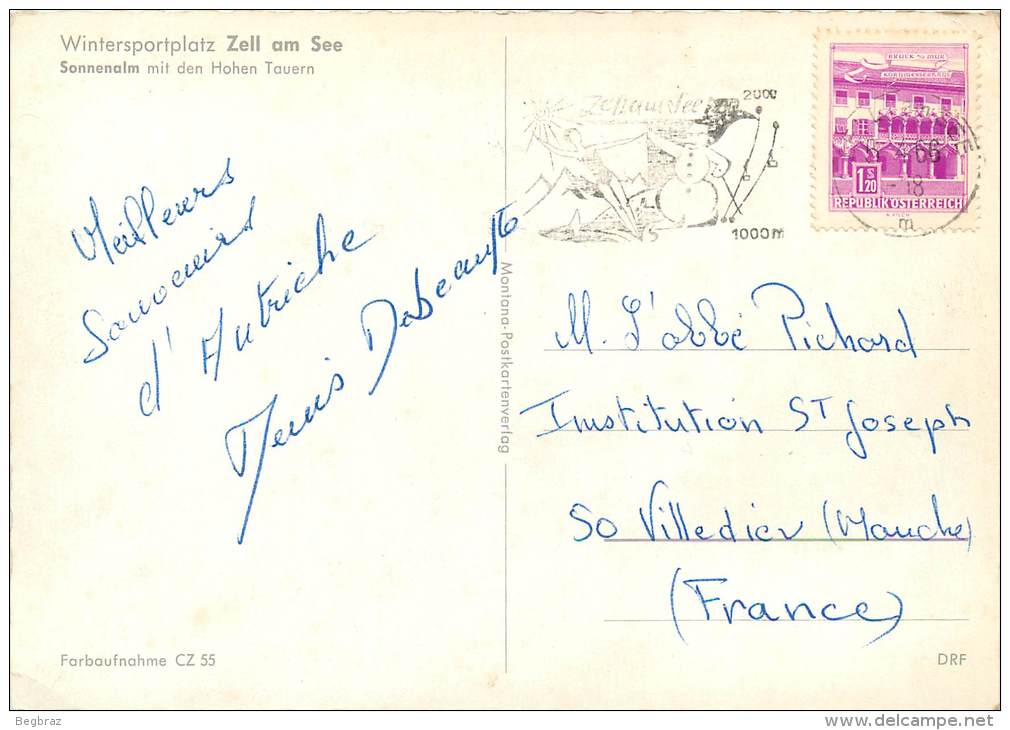 Wintersportplatz Zell am See
Sonnenalm mit den Hohen Tauern
Meilleurs
Souvenirs
d'Autriche
Denis
Zell am See
2000
1000 m
BRUCK a/d MUR
KORNMESSERHAUS
66
-18
m
1 S 20
REPUBLIK ÖSTERREICH
M. L'abbé Pichard
Institution ST Joseph
50 Villedieu (Manche)
(France)
Montana-Postkartenverlag
Farbaufnahme CZ 55
DRF
Begbraz
www.delcampe.net